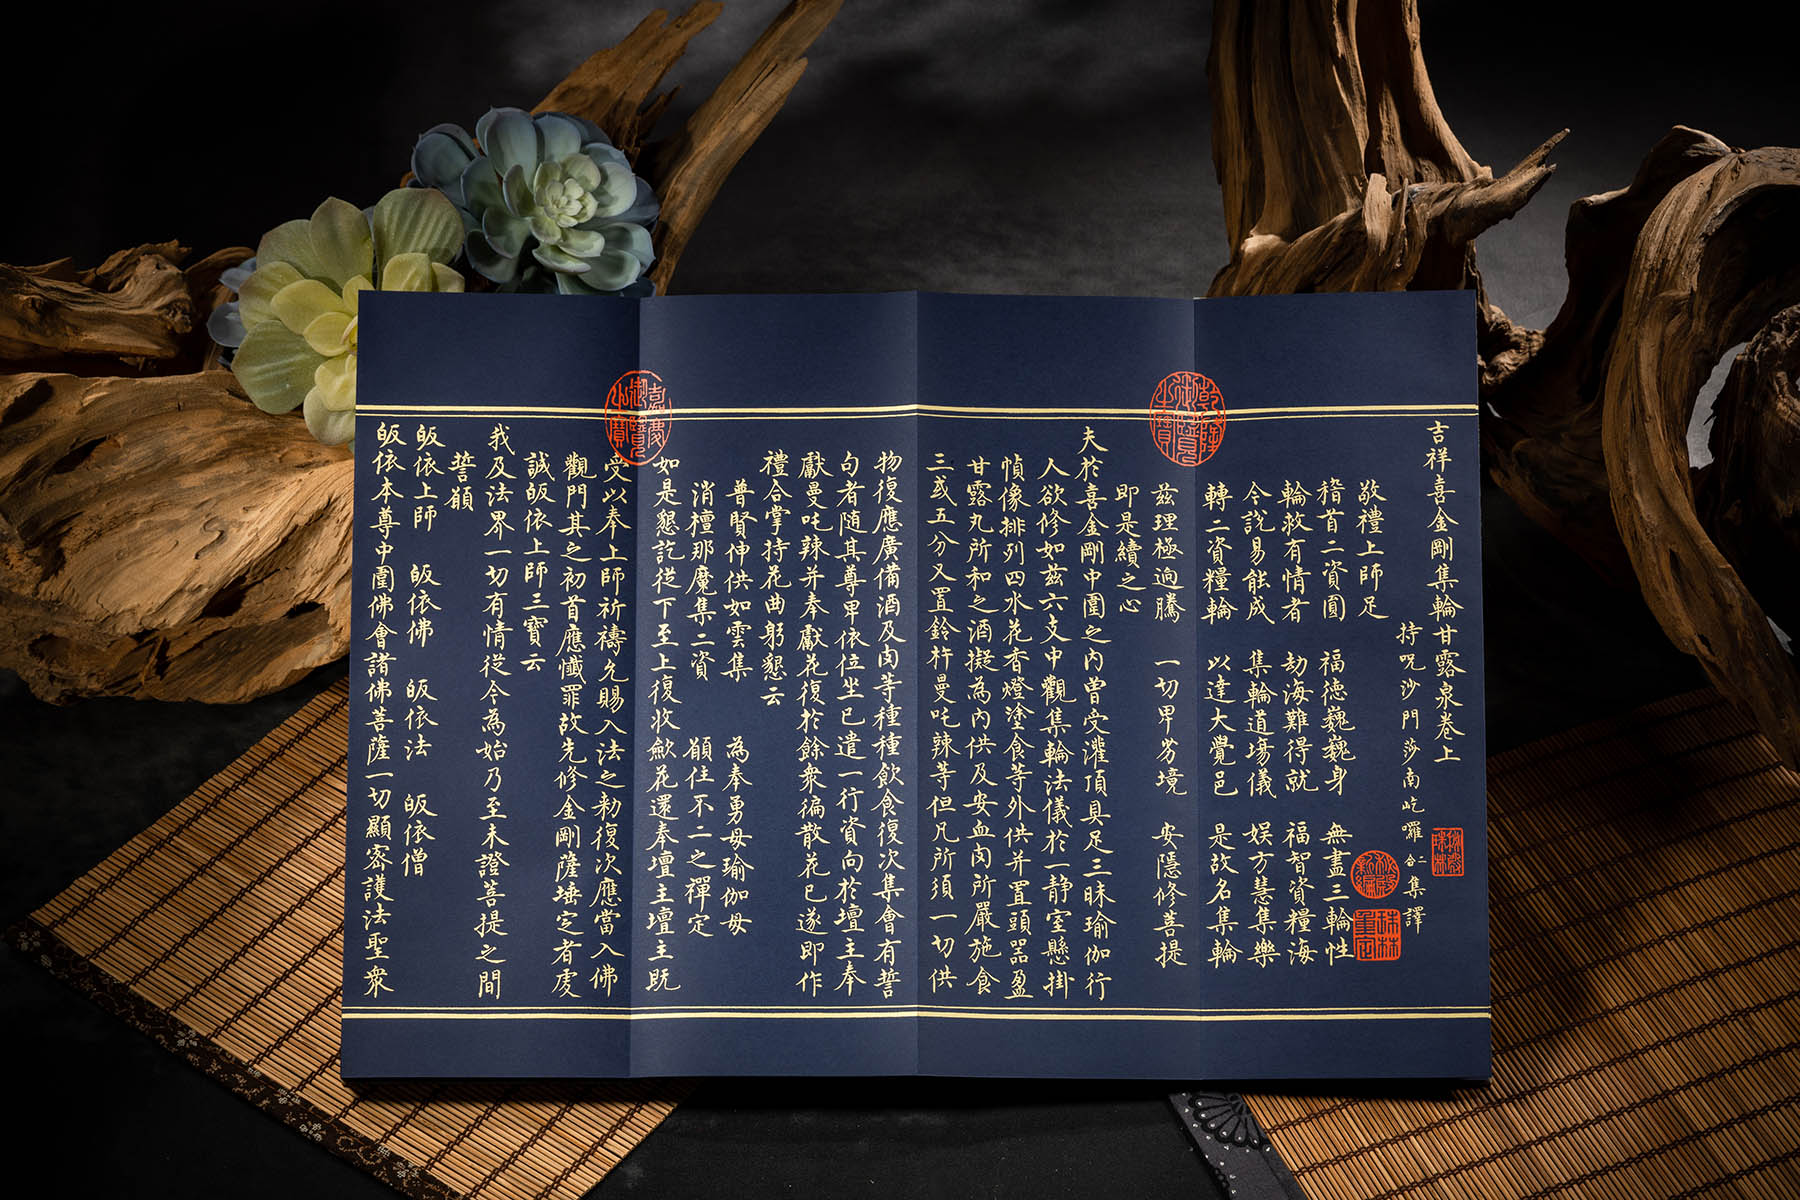 吉祥喜金剛集輪甘露泉卷上
持呪沙門莎南屹囉二合集譯
敬禮上師足
稽首二資圓 福德巍巍身 無盡三輪性
輪救有情者 劫海難得就 福智資糧海
今說易能成 集輪道場儀 娱方慧集樂
轉二資糧輪 以達大覺邑 是故名集輪
茲理極迥騰 一切卑劣境 安隱修菩提
即是續之心
夫於喜金剛中圍之內曾受灌頂具足三昧瑜伽行
人欲修如茲六支中觀集輪法儀於一静室懸掛
幀像排列四水花香燈塗食等外供并置頭器盈
甘露丸所和之酒擬為內供及安血肉所嚴施食
三或五分又置鈴杵曼吒辣等但凡所須一切供
物復應廣備酒及肉等種種飲食復次集會有誓
句者随其尊卑依位坐已遣一行資向於壇主奉
獻曼吒辣并奉獻花復於餘衆徧散花已遂即作
禮合掌持花曲躬懇云
普賢伸供如雲集 為奉勇母瑜伽母
消檀那魔集二資 願住不二之禪定
如是懇訖從下至上復收歛花還奉壇主壇主既
受以奉上師祈禱允賜入法之勑復次應當入佛
觀門其之初首應懺罪故先修金剛薩埵定者虔
誠皈依上師三寶云
我及法界一切有情從今為始乃至未證菩提之間
誓願
皈依上師 皈依佛 皈依法 皈依僧
皈依本尊中圍佛會諸佛菩薩一切顯密護法聖衆
乾隆御覽之寶
嘉慶御覽之寶
秘殿珠林
秘殿新編
珠林重定